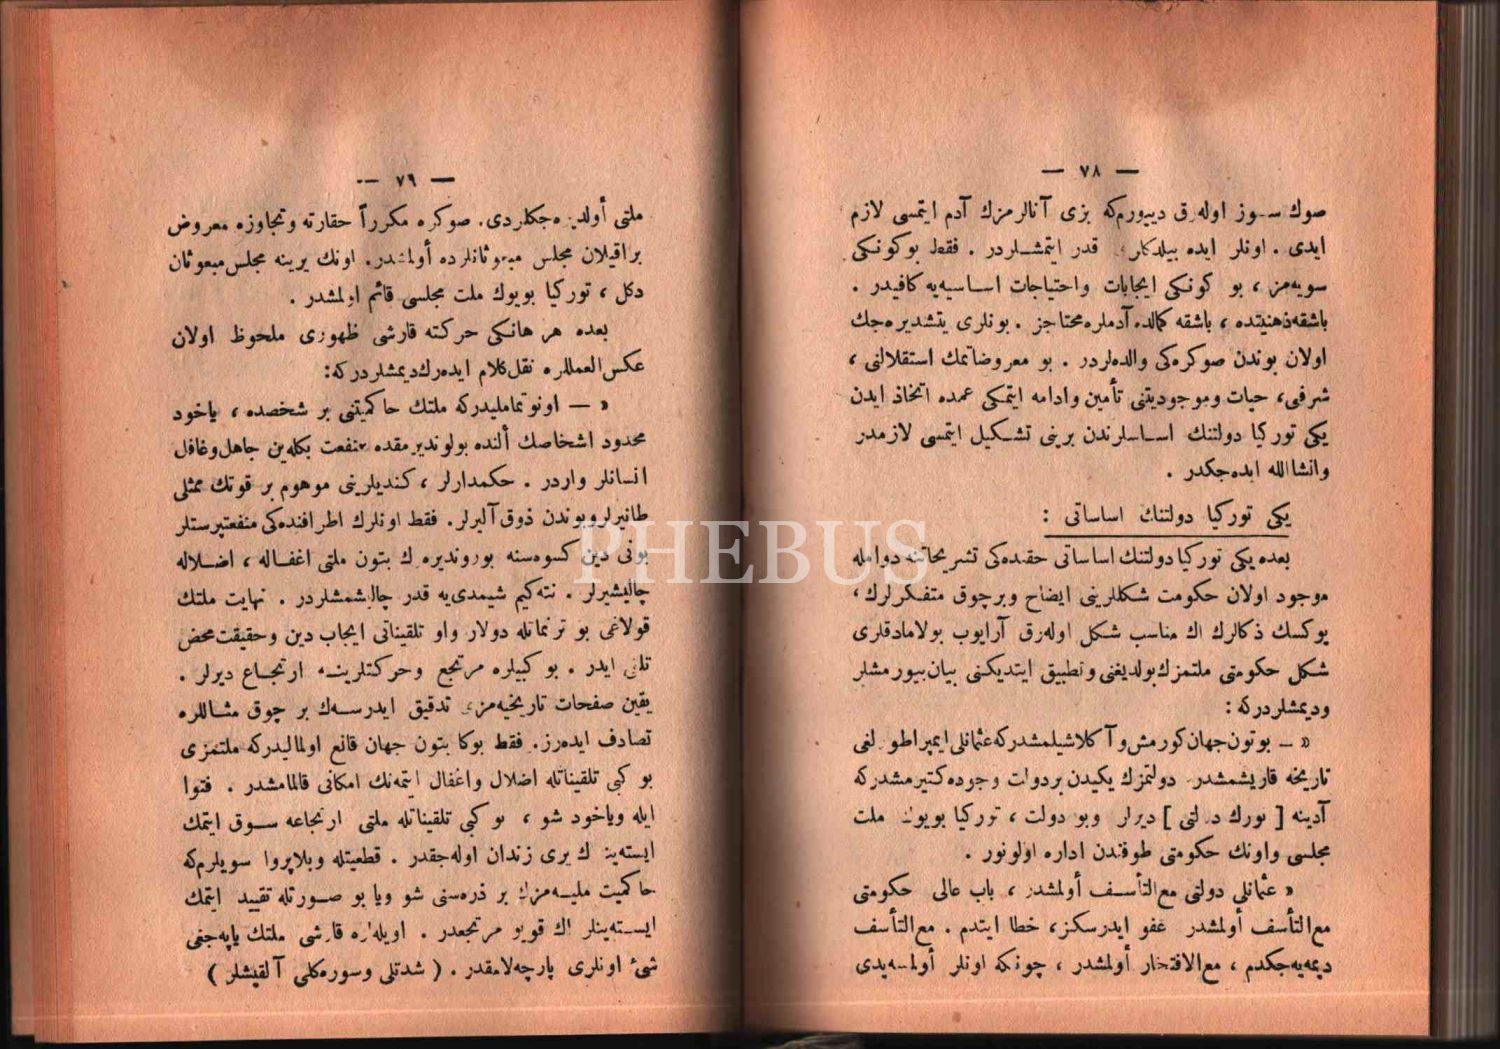 — ٧٨ —
صوك سوز اوله‌رق دييورم‌كه بزى آنالرمزك آدم ايتمسى لازم
ايدى . اونلر ايده بيلدكلرى قدر ايتمشلردر . فقط بوكونكى
سويه‌مز ، بو كونكى ايجابات واحتياجات اساسيه‌يه كافيدر .
باشقه ذهنيتده ، باشقه كمالده آدملره محتاجز . بونلرى يتشديره‌جك
اولان بوندن صوكره‌كى والده‌لردر . بو معروضاتمك استقلالنى ،
شرفى ، حيات وموجوديتنى تأمين وادامه ايتمكى عمده اتخاذ ايدن
يكى توركيا دولتنك اساسلرندن برينى تشكيل ايتمسى لازمدر
وانشاالله ايده‌جكدر .
يكى توركيا دولتنك اساساتى :
بعده يكى توركيا دولتنك اساساتى حقنده‌كى تشريحاتنه دوامله
موجود اولان حكومت شكللرينى ايضاح وبرچوق متفكرلرك ،
يوكسك ذكالرك اك مناسب شكل اوله‌رق آرايوب بولامادقلرى
شكل حكومتى ملتمزك بولديغنى وتطبيق ايتديكنى بيان بيورمشلر
وديمشلردركه :
« — بوتون جهان كورمش و آكلاشيلمشدركه عثمانلى ايمپراطورلغى
تاريخه قاريشمشدر . دولتمزك يكيدن بر دولت وجوده كتيرمشدركه
آدينه [ تورك دولتى ] ديرلر وبو دولت ، توركيا بويوك ملت
مجلسى واونك حكومتى طرفندن اداره اولونور .
« عثمانلى دولتى مع‌التأسف أولمشدر ، باب عالى حكومتى
مع‌التأسف أولمشدر عفو ايدرسكز ، خطا ايتدم . مع‌التأسف
ديميه‌جكدم ، مع‌الافتخار أولمشدر ، چونكه اونلر أولمسه‌يدى
— ٧٩ —
ملتى أولديره‌جكلردى . صوكره مكرراً حقارته وتجاوزه معروض
براقيلان مجلس مبعوثانلرده أولمشدر . اونك يرينه مجلس مبعوثان
دكل ، توركيا بويوك ملت مجلسى قائم اولمشدر .
بعده هر هانكى حركته قارشى ظهورى ملحوظ اولان
عكس‌العمللره نقل كلام ايده‌رك ديمشلردركه :
« — اونوتماملیدركه ملتك حاكميتنى بر شخصده ، ياخود
محدود اشخاصك ألنده بولونديرمقده منفعت بكله‌ين جاهل وغافل
انسانلر واردر . حكمدارلر ، كنديلرينى موهوم بر قوتك ممثلى
طانيرلر وبوندن ذوق آليرلر . فقط اونلرك اطرافنده‌كى منفعتپرستلر
بونى دين كسوه‌سنه بورونديره‌رك بتون ملتى اغفاله ، اضلاله
چاليشيرلر . نته‌كيم شيمدى‌يه قدر چاليشمشلردر . نهايت ملتك
قولاغى بو ترنماتله دولار واو تلقيناتى ايجاب دين وحقيقت محض
تلقى ايدر . بو كبيلره مرتجع وحركتلرينه ارتجاع ديرلر .
يقين صفحات تاريخيه‌مزى تدقيق ايدرسه‌ك بر چوق مثاللره
تصادف ايده‌رز . فقط بوكا بتون جهان قانع اولماليدركه ملتمزى
بو كبى تلقيناتله اضلال واغفال ايتمه‌نك امكانى قالمامشدر . فتوا
ايله وياخود شو ، بو كبى تلقيناتله ملتى ارتجاعه سوق ايتمك
ايسته‌ينك يرى زندان اوله‌جقدر . قطعيتله وبلاپروا سويلرم‌كه
حاكميت مليه‌مزك بر ذره‌سنى شو ويا بو صورتله تقييد ايتمك
ايسته‌ينلر اك قويو مرتجعدر . اويله‌لره قارشى ملتك ياپه‌جغى
شئ اونلرى پارچه‌لامقدر . ( شدتلى وسوره‌كلى آلقيشلر )
PHEBUS